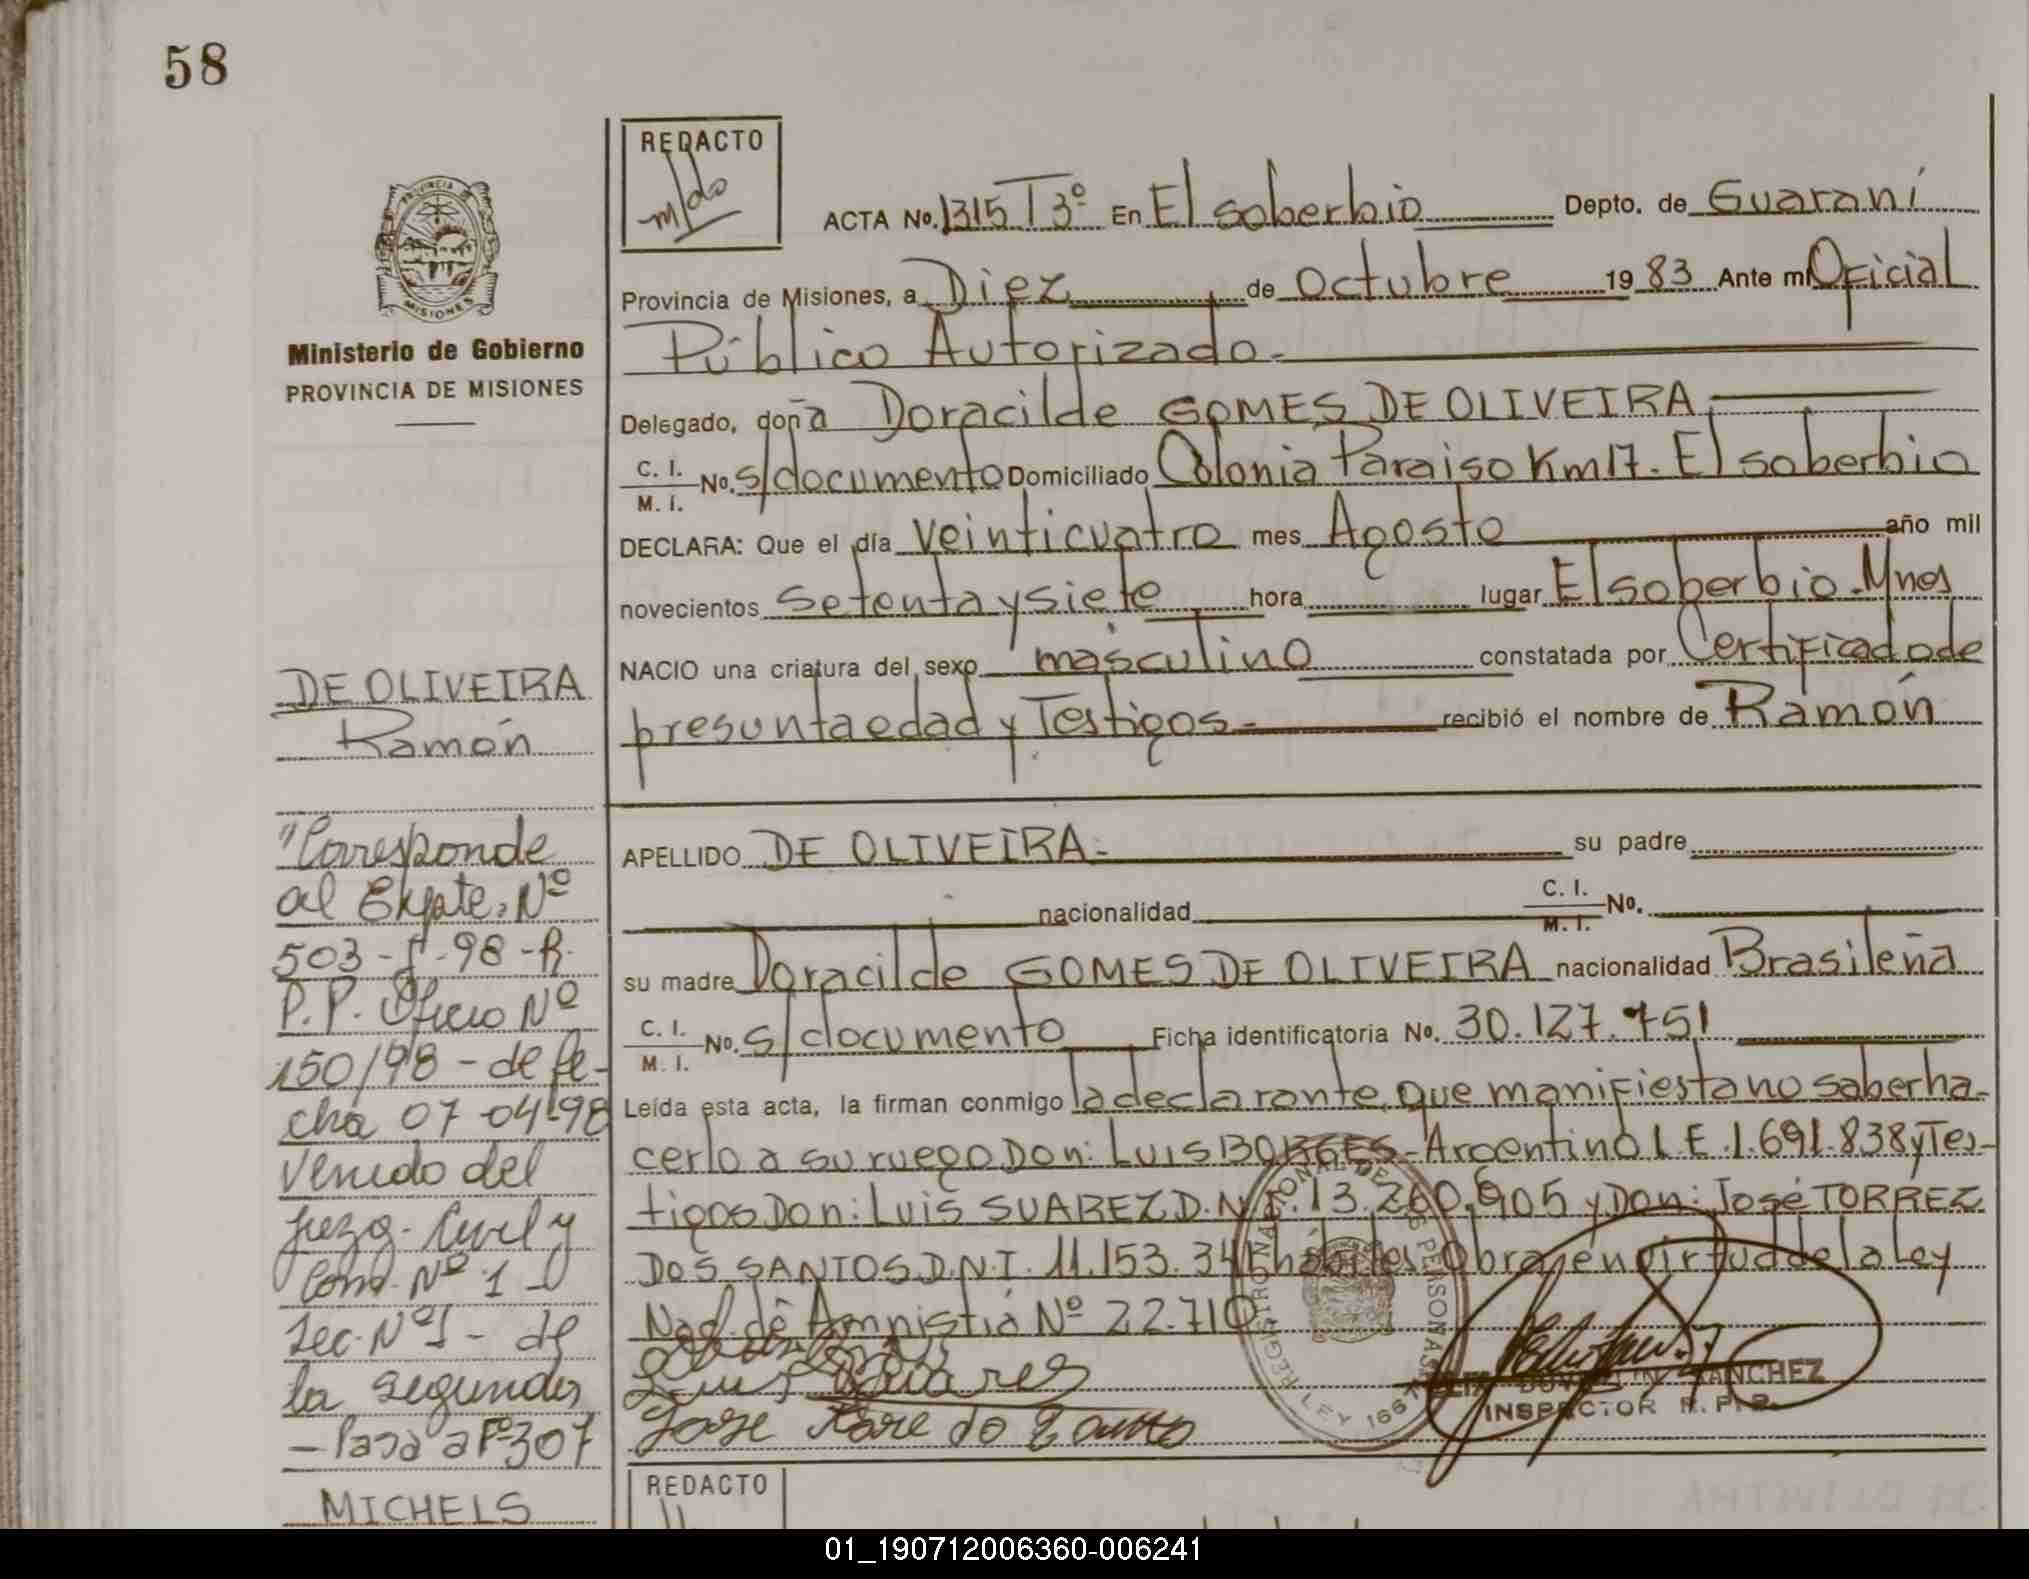 58
REDACTO
ACTA No. 1315 T 3º En El soberbio Depto. de Guaraní
Provincia de Misiones, a Diez de Octubre 1983 Ante mi Oficial
Público Autorizado.
Ministerio de Gobierno
PROVINCIA DE MISIONES
Delegado, doña Doracilde GOMES DE OLIVEIRA
C. I.
M. I. No. s/documento Domiciliado Colonia Paraiso Km 17. El soberbio
DECLARA: Que el día veinticuatro mes Agosto año mil
novecientos setenta y siete hora lugar El soberbio. Mnes
NACIO una criatura del sexo masculino constatada por Certificado de
presunta edad y Testigos recibió el nombre de Ramón
DE OLIVEIRA
Ramón
APELLIDO DE OLIVEIRA. su padre
nacionalidad C. I. M. I. No.
su madre Doracilde GOMES DE OLIVEIRA nacionalidad Brasileña
C. I.
M. I. No. s/documento Ficha identificatoria No. 30.127.751
Leída esta acta, la firman conmigo la declarante, que manifiesta no saber ha-
cerlo a su ruego Don: Luis BORGES - Argentino L.E. 1.691.838 y Tes-
tigos Don: Luis SUAREZ D.N.I. 13.260.905 y Don: José TORREZ
DOS SANTOS D.N.I. 11.153. hábiles. Obra en virtud de la Ley
Nac. de Amnistia Nº 22.710
Luis Suares
Jose do
REGISTRO NACIONAL DE LAS PERSONAS
LEY
SANCHEZ
INSPECTOR R. P. P.
"Corresponde
al Expte. Nº
503- -98 -R.
P.P. Oficio Nº
150/98 - de fe-
cha 07-04-98
venido del
Juzg. Civil y
Com. Nº 1 -
Sec. Nº 1 - de
la segunda
- Pasa a Fº 307
MICHELS
REDACTO
01_190712006360-006241